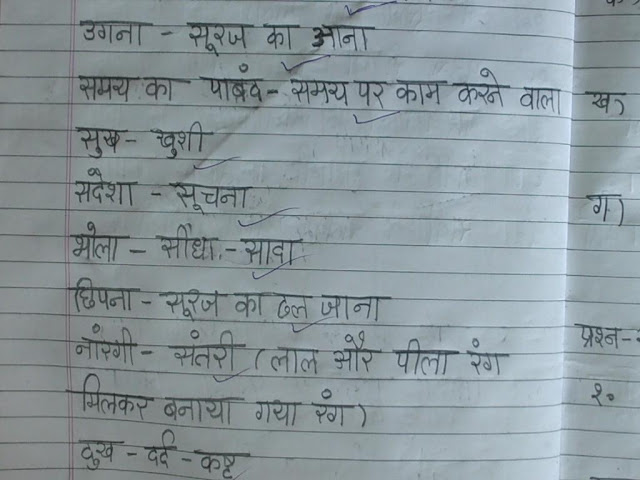 उगना - सूरज का आना
समय का पाबंद - समय पर काम करने वाला
सुख - खुशी
संदेशा - सूचना
भोला - सीधा - सादा
छिपना - सूरज का ढल जाना
नारंगी - संतरी (लाल और पीला रंग
मिलकर बनाया गया रंग)
दुख - दर्द - कष्ट
ख)
ग)
प्रश्न-
१०